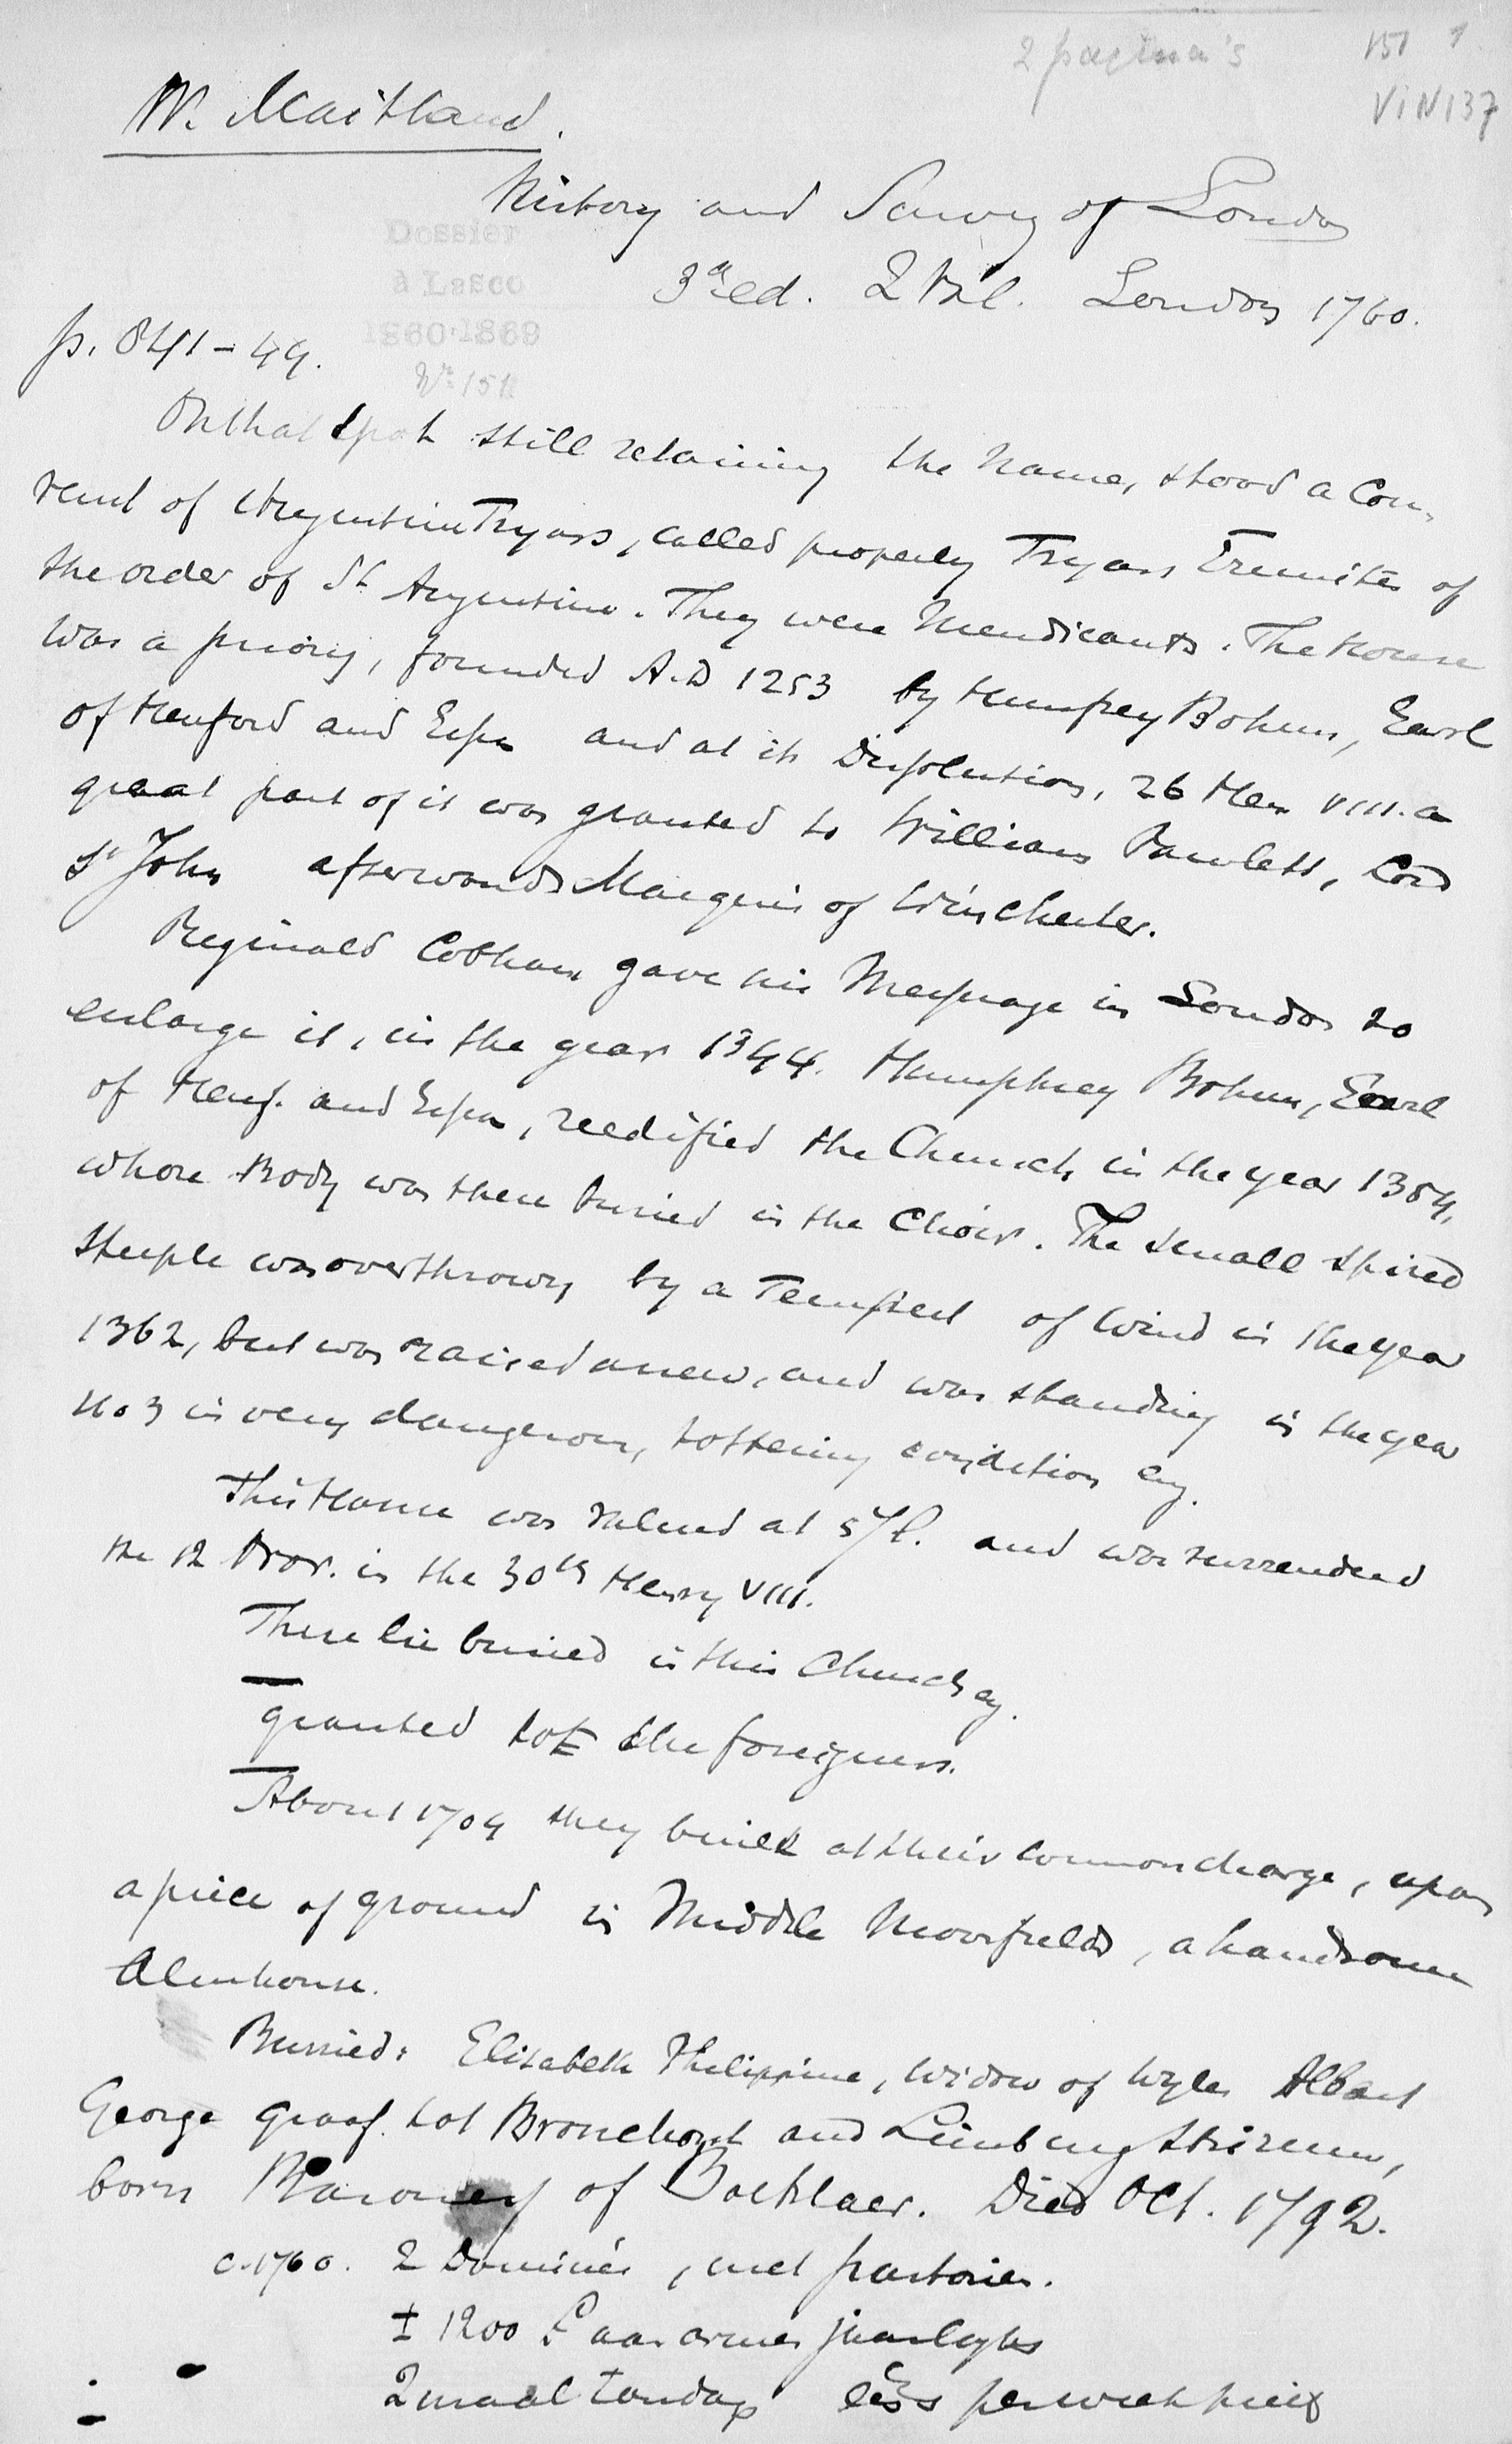 2 pagina's
151 1
VIN137
W. Maitland.
History and Survey of London
3d ed. 2 Vol. London 1760.
Dossier
à Lasco
1860-1869
No 151
p. 841-49.
On that spot still retaining the Name, stood a Con-
vent of Augustine Fryars, called properly Fryars Eremites of
the order of St Augustine. They were Mendicants. The House
was a priory, founded A.D 1253 by Humfrey Bohun, Earl
of Hereford and Essex and at its Dissolution, 26 Hen VIII. a
great part of it was granted to William Pawlett, Lord
St John afterwards Marquis of Winchester.
Reginald Cobham gave his Messuage in London to
enlarge it, in the year 1344. Humphrey Bohun, Earl
of Heref. and Essex, reedified the Church in the year 1354,
whose Body was there buried in the Choir. The small spired
steeple was overthrown by a Tempest of wind in the year
1362, but was raised anew, and was standing in the year
1603 in very dangerous, tottering condition
This House was valued at 57 l. and was surrendered
the 12 Nov. in the 30th Henry VIII.
There lie buried in this Church
granted to the foreigners.
About 1704 they built at their common charge, upon
a piece of ground in Middle Moorfields, a handsome
Almhouse.
Burried: Elisabeth Philippine, Widow of Wylen Albert
George graaf tot Bronchorst and Limburg Stirum,
born of Boetzlaer. Died Oct. 1792.
c. 1760. 2 Dominés, met pastorien.
± 1200 £ aan armen jaarlyks
2 maal Zondags per week